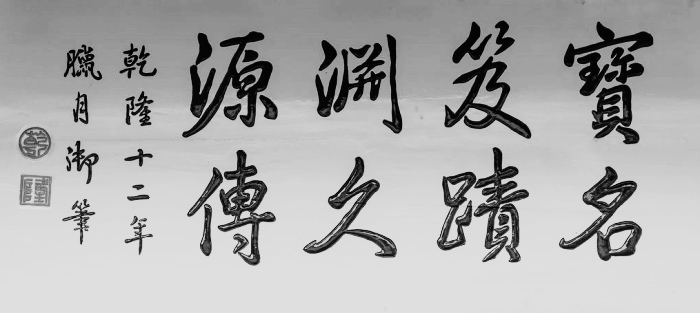 寶笈淵源
名蹟久傳
乾隆十二年
臘月御筆
乾
隆